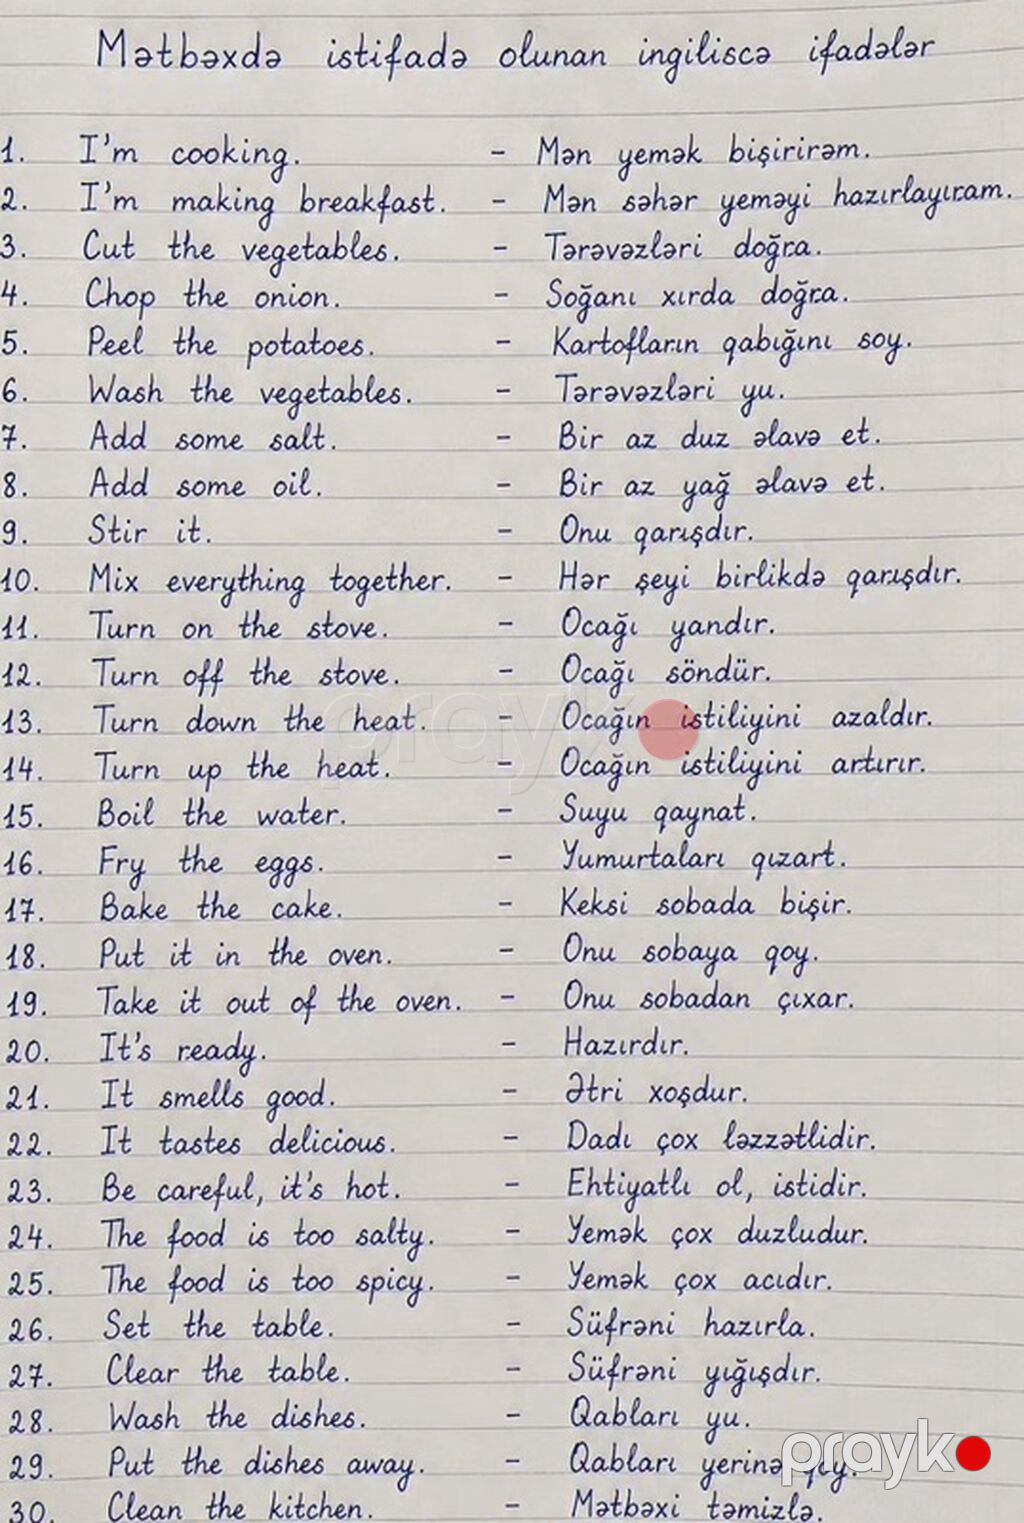 Mətbəxdə istifadə olunan ingiliscə ifadələr
1. I'm cooking. - Mən yemək bişirirəm.
2. I'm making breakfast. - Mən səhər yeməyi hazırlayıram.
3. Cut the vegetables. - Tərəvəzləri doğra.
4. Chop the onion. - Soğanı xırda doğra.
5. Peel the potatoes. - Kartofların qabığını soy.
6. Wash the vegetables. - Tərəvəzləri yu.
7. Add some salt. - Bir az duz əlavə et.
8. Add some oil. - Bir az yağ əlavə et.
9. Stir it. - Onu qarışdır.
10. Mix everything together. - Hər şeyi birlikdə qarışdır.
11. Turn on the stove. - Ocağı yandır.
12. Turn off the stove. - Ocağı söndür.
13. Turn down the heat. - Ocağın istiliyini azaldır.
14. Turn up the heat. - Ocağın istiliyini artırır.
15. Boil the water. - Suyu qaynat.
16. Fry the eggs. - Yumurtaları qızart.
17. Bake the cake. - Keksi sobada bişir.
18. Put it in the oven. - Onu sobaya qoy.
19. Take it out of the oven. - Onu sobadan çıxar.
20. It's ready. - Hazırdır.
21. It smells good. - Ətri xoşdur.
22. It tastes delicious. - Dadı çox ləzzətlidir.
23. Be careful, it's hot. - Ehtiyatlı ol, istidir.
24. The food is too salty. - Yemək çox duzludur.
25. The food is too spicy. - Yemək çox acıdır.
26. Set the table. - Süfrəni hazırla.
27. Clear the table. - Süfrəni yığışdır.
28. Wash the dishes. - Qabları yu.
29. Put the dishes away. - Qabları yerinə qoy.
30. Clean the kitchen. - Mətbəxi təmizlə.
prayk
prayk